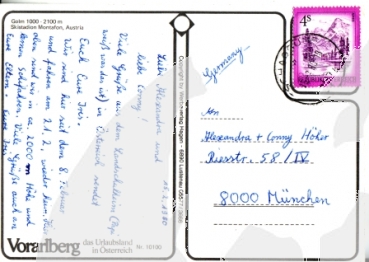 Golm 1900 - 2100 m
Skistadion Montafon, Austria
21.2.1980
Liebe Alexandra und
liebe Conny!
Viele Grüße aus dem Landschulheim
weiß was das ist) in Österreich sendet
Euch Eure Iris.
Wir sind hier seit dem 8. Februar
und fahren am 21.2. wieder heim. Hier
oben sind wir in ca 2000 m Höhe und
Skifahren. Viele Grüße auch an
Eure Eltern. Eure Iris
Vorarlberg
das Urlaubsland
in Österreich
Nr. 10190
Germany
4 S
An
Alexandra + Conny Höher
Riesstr. 58/IV
8000 München